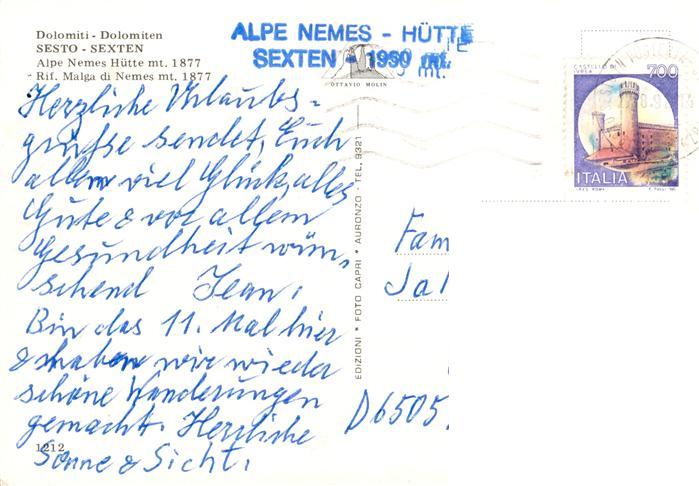 Dolomiti - Dolomiten
SESTO - SEXTEN
Alpe Nemes Hütte mt. 1877
Rif. Malga di Nemes mt. 1877
ALPE NEMES - HÜTTE
SEXTEN - 1950 mt.
OTTAVIO MOLIN
Herzliche Urlaubs-
grüsse sendet, Euch
allem viel Glück, alles
Gute & vor allem
Gesundheit wün-
schend Jean.
Bin das 11. Mal hier
& haben wir wieder
schöne Wanderungen
gemacht. Herzliche
Sonne & Sicht.
1212
EDIZIONI * FOTO CAPRI * AURONZO - TEL. 9321
CASTELLO DI
IVREA
700
ITALIA
Fam
Jal
D6505